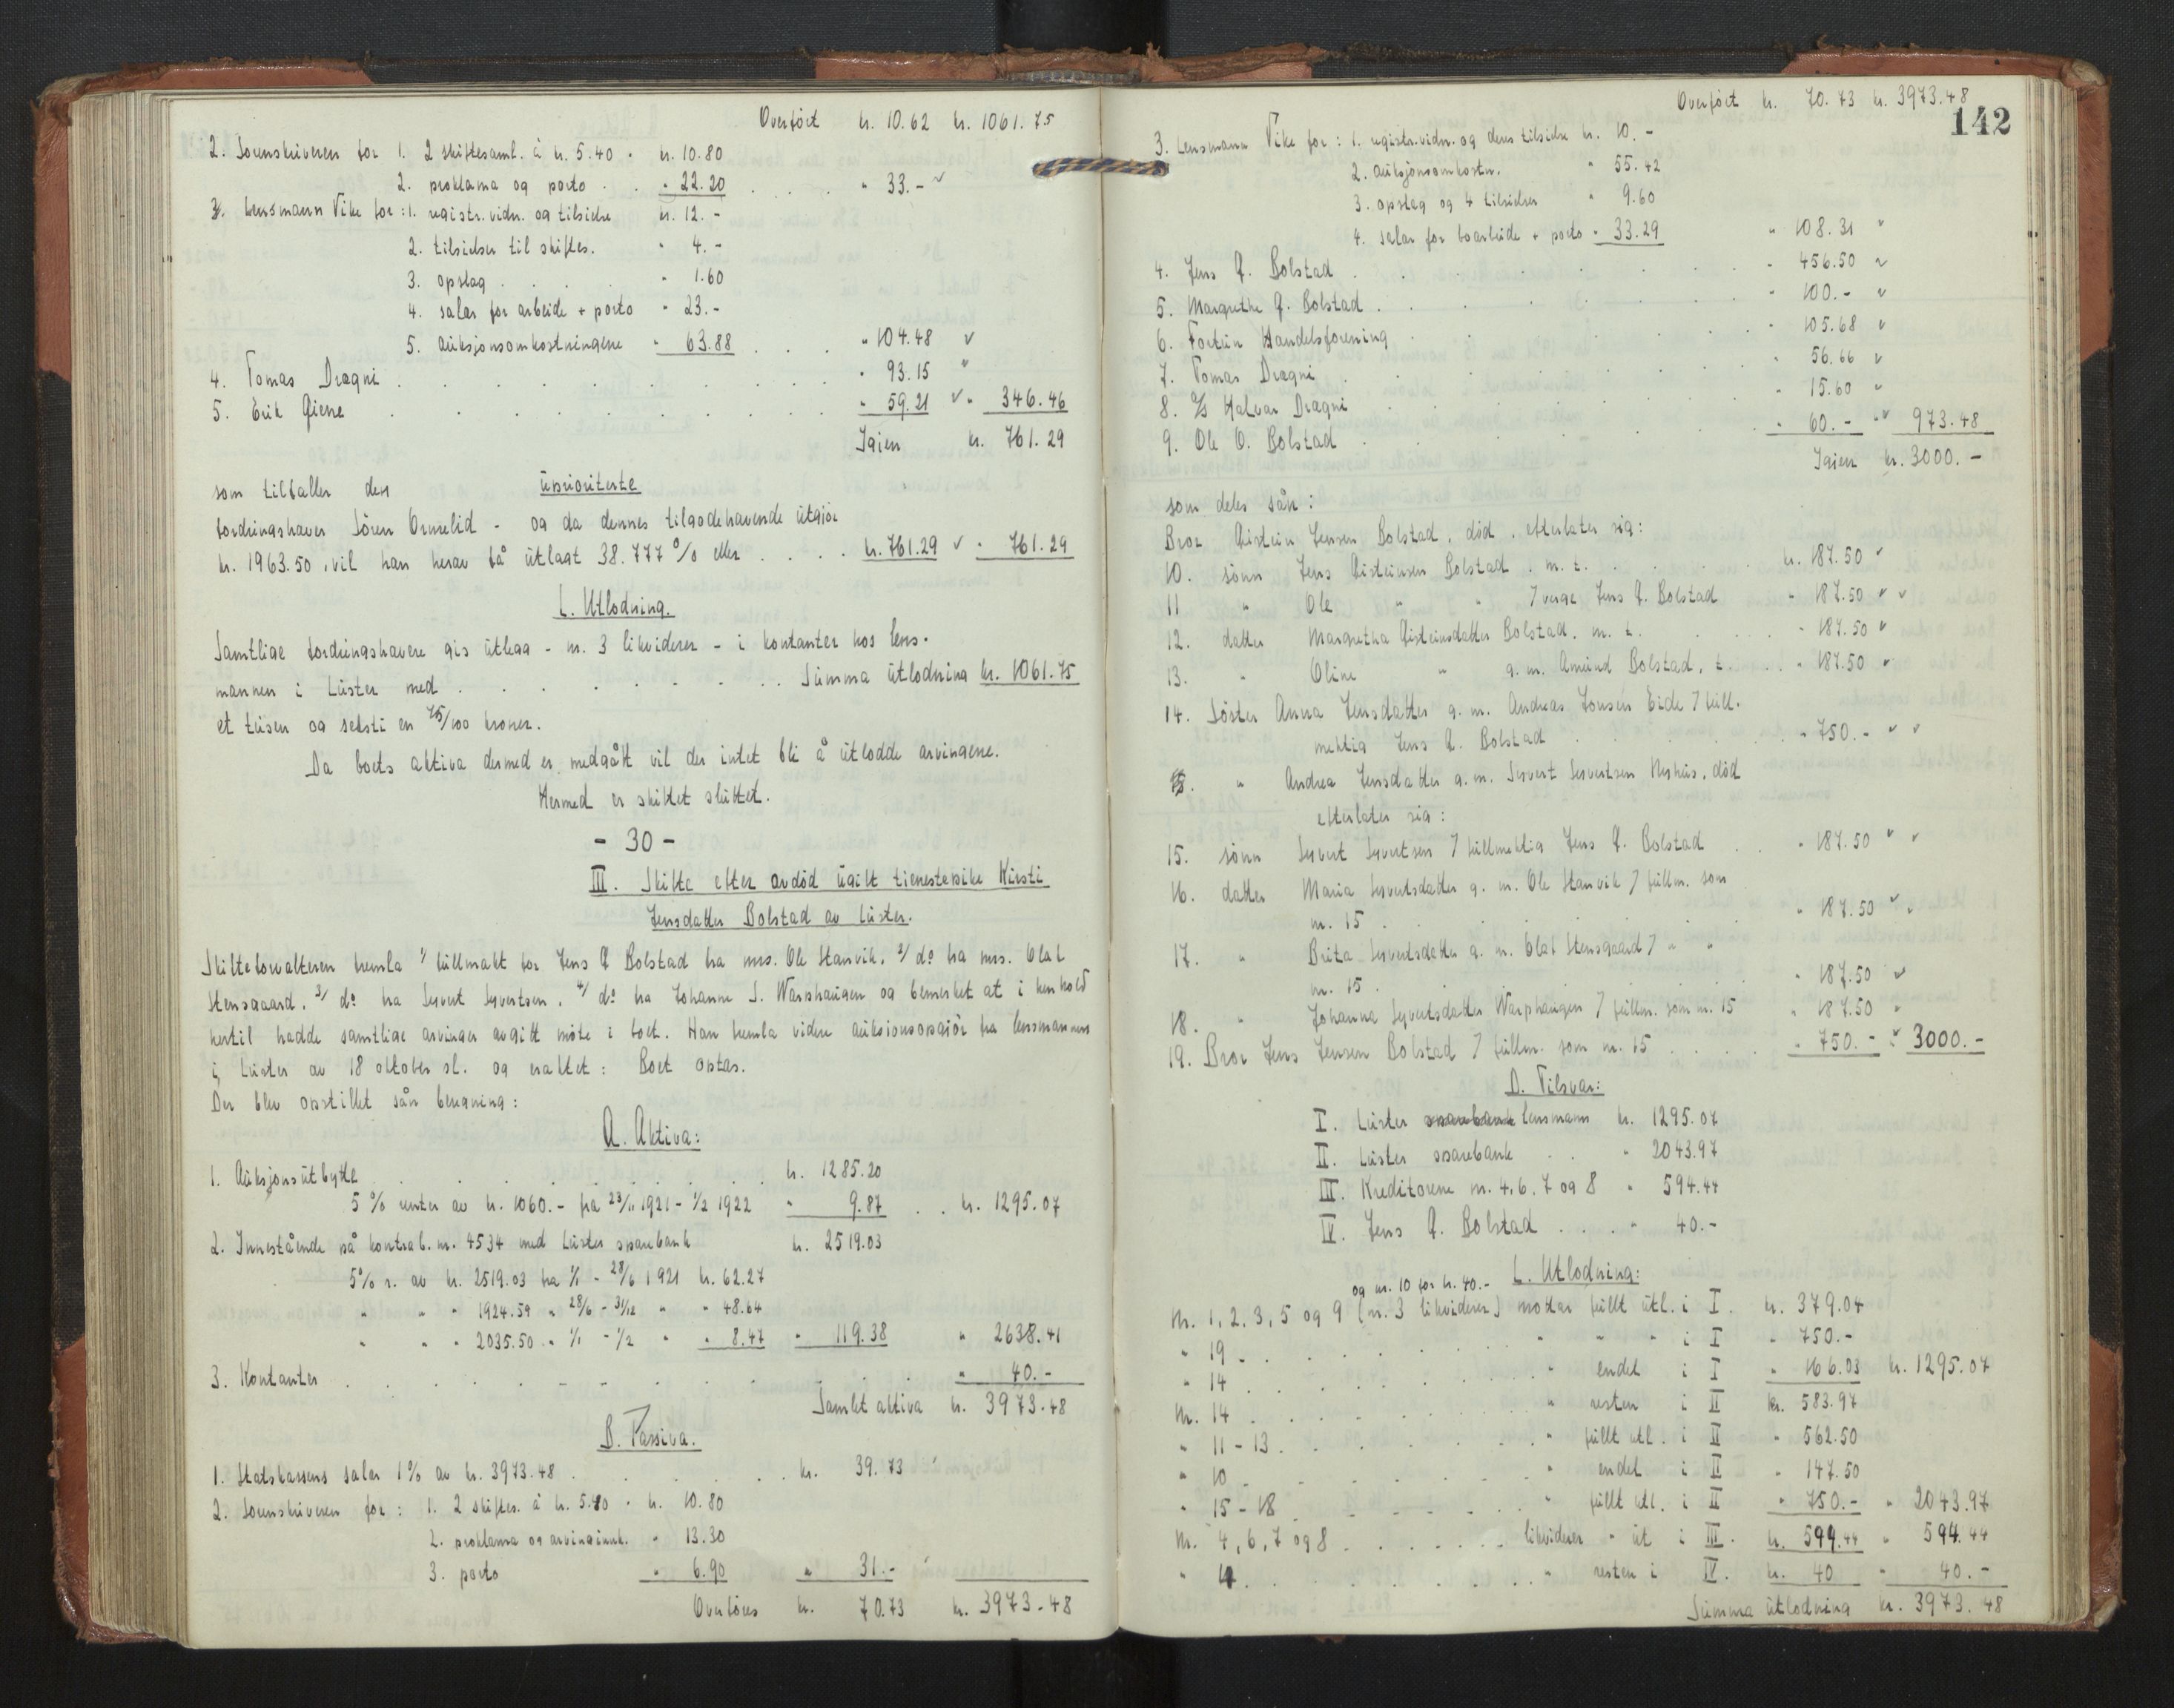 Overført kr. 10.62 kr. 1061.75
2. Sorenskriveren for 1. 2 skiftesaml. à kr. 5.40 = kr. 10.80
2. proklama og porto . . " 22.20 . . . " 33.-
3. Lensmann Vike for: 1. registr.vidn. og tilsidse kr. 12.-
2. tilsidser til skiftes. " 4.-
3. opslag . . . . " 1.60
4. salar for arbeide + porto " 23.-
5. auksjonsomkostningene " 63.88 . . . " 104.48
4. Tomas Drægni . . . . " 93.15
5. Erik Gjerne . . . . " 59.21 " 346.46
Igjen kr. 761.29
som tilfaller den upriviterte
fordringshaver Sören Ormelid - og da dennes tilgodehavende utgjør
kr. 1963.50, vil han herav få utlagt 38.777 % eller . . . . kr. 761.29 " 761.29
C. Utlodning.
Samtlige fordringshavere gis utlegg - nr. 3 likviderer - i kontanter hos lens-
mannen i Luster med . . . . Summa utlodning kr. 1061.75
et tusen og seksti en 75/100 kroner.
Da boets aktiva dermed er medgått vil der intet bli å utlodde arvingene.
Hermed er skiftet sluttet.
- 30 -
III. Skifte efter avdöd ugift tjenestepike Kirsti
Jensdatter Bolstad av Luster.
Skifteforvalteren fremla 1/ fullmakt for Jens Q. Bolstad fra mrs. Ole Stanvik, 2/ do fra mrs. Olaf
Stensgaard, 3/ do fra Syvert Syvertsen, 4/ do fra Johanne S. Warphaugen og bemerket at i henhold
hertil hadde samtlige arvinger avgitt möte i boet. Han fremla videre auksionsopgjör fra lensmannen
i Luster av 18 oktober sl. og erakket: Boet optas.
Der blev opstillet sån beregning:
A. Aktiva:
1. Auksjonsutbytte . . . . kr. 1285.20
5 % renter av kr. 1060.- fra 23/11 1921 - 1/2 1922 " 9.87 . . kr. 1295.07
2. Innestående på kontrab. nr. 4534 med Luster sparebank kr. 2519.03
5% r. av kr. 2519.03 fra 1/1 - 28/6 1921 kr. 62.27
" " " 1924.59 " 28/6 - 31/12 " " 48.64
" " " 2035.50 " 1/1 - 1/2 " " 8.47 " 119.38 " 2638.41
3. Kontanter . . . . " 40.-
Samlet aktiva kr. 3973.48
B. Passiva.
1. Statskassens salar 1% av kr. 3973.48 . . . . kr. 39.73
2. Sorenskriveren for: 1. 2 skiftes. à kr. 5.40 = kr. 10.80
2. proklama og arvinginnk. " 13.30
3. porto " 6.90 " 31.-
Overføres kr. 70.73 kr. 3973.48
Overført kr. 70.73 kr. 3973.48
142
3. Lensmann Vike for: 1. registr.vidn. og dens tilsidse kr. 10.-
2. auksjonsomkostn. " 55.42
3. opslag og 4 tilsidser " 9.60
4. salar for boarbeide + porto " 33.29 " 108.31
4. Jens Q. Bolstad . . . . " 456.50
5. Margrethe Q. Bolstad . . . . " 100.-
6. Fortun Handelsforening . . . . " 105.68
7. Tomas Drægni . . . . " 56.66
8. Halvar Drægni . . . . " 15.60
9. Ole O. Bolstad . . . . " 60.- " 973.48
Igjen kr. 3000.-
som deles sån:
Bror Qistein Jensen Bolstad, död, efterlater sig:
10. sönn Jens Qisteinsen Bolstad, m. t. . . . kr. 187.50
11 " Ole " " 7 verge Jens Q. Bolstad " 187.50
12. datter Margretha Qisteinsdatter Bolstad, m. t. . . . " 187.50
13. " Oline " g. m. Amund Bolstad, t. . . . " 187.50
14. Söster Anna Jensdatter g. m. Andreas Jonsen Eide 7 full-
mektig Jens Q. Bolstad . . . . " 750.-
" Andrea Jensdatter g. m. Syvert Syvertsen Nyhus, död
efterlater sig:
15. sönn Syvert Syvertsen 7 fullmektig Jens Q. Bolstad . . " 187.50
16. datter Maria Syvertsdatter g. m. Ole Stanvik 7 fullm. som
nr. 15 . . . . " 187.50
17. " Brita Syvertsdatter g. m. Olaf Stensgaard 7 " "
nr. 15 . . . . " 187.50
18. " Johanna Syvertsdatter Warphaugen 7 fullm. som nr. 15 " 187.50
19. Bror Jens Jensen Bolstad 7 fullm. som nr. 15 . . . . " 750.- " 3000.-
D. Tilsvar:
I. Luster sparebank lensmann kr. 1295.07
II. Luster sparebank . . " 2043.97
III. Kreditorene nr. 4, 6, 7 og 8 " 594.44
IV. Jens Q. Bolstad . . . " 40.-
C. Utlodning:
og nr. 10 for kr. 40.-
Nr. 1, 2, 3, 5 og 9 (nr. 3 likviderer) mottar fullt utl. i I. kr. 379.04
" 19 . . . . " " " i I " 750.-
" 14 . . . . " endel i I " 166.03 kr. 1295.07
Nr. 14 . . . . " resten i II kr. 583.97
" 11-13 . . . . " fullt utl. i II " 562.50
" 10 . . . . " endel i II " 147.50
" 15-18 . . . . " fullt utl. i II " 750.- " 2043.97
Nr. 4, 6, 7 og 8 . . . . likviderer " ut i III. kr. 594.44 " 594.44
" 4 . . . . " resten i IV. kr. 40 " 40.-
Summa utlodning kr. 3973.48